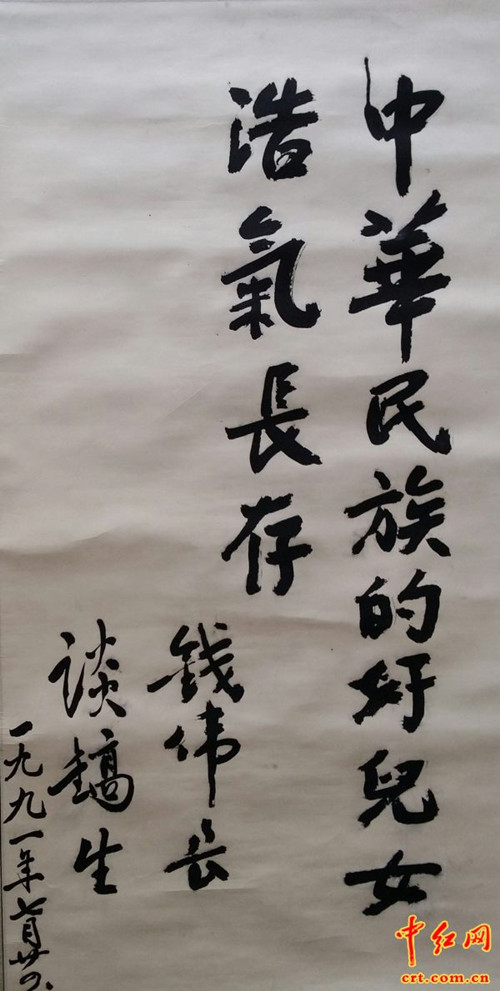 中華民族的好兒女
浩氣長存
錢伟长
談鎬生
一九九一年七月廿四.
中红网
crt.com.cn